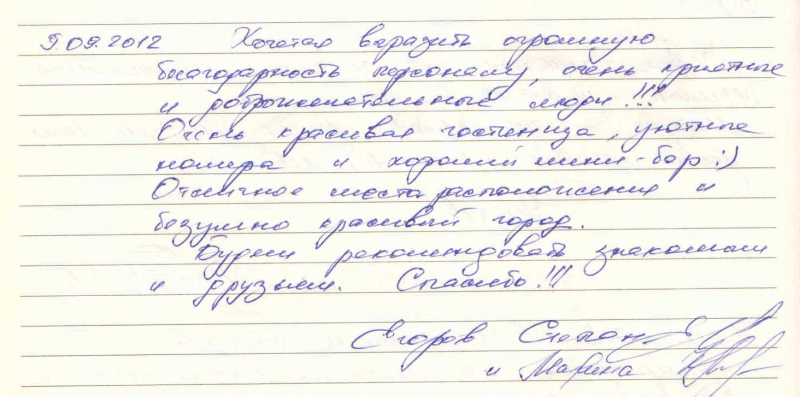 9.09.2012 Хочется выразить огромную
благодарность персоналу, очень приятные
и доброжелательные люди!!!
Очень красивая гостиница, уютные
номера и хороший мини-бар :)
Отличное место расположения и
безумно красивый город.
Будем рекомендовать знакомым
и друзьям. Спасибо!!!
Егоров Степан
и Марина